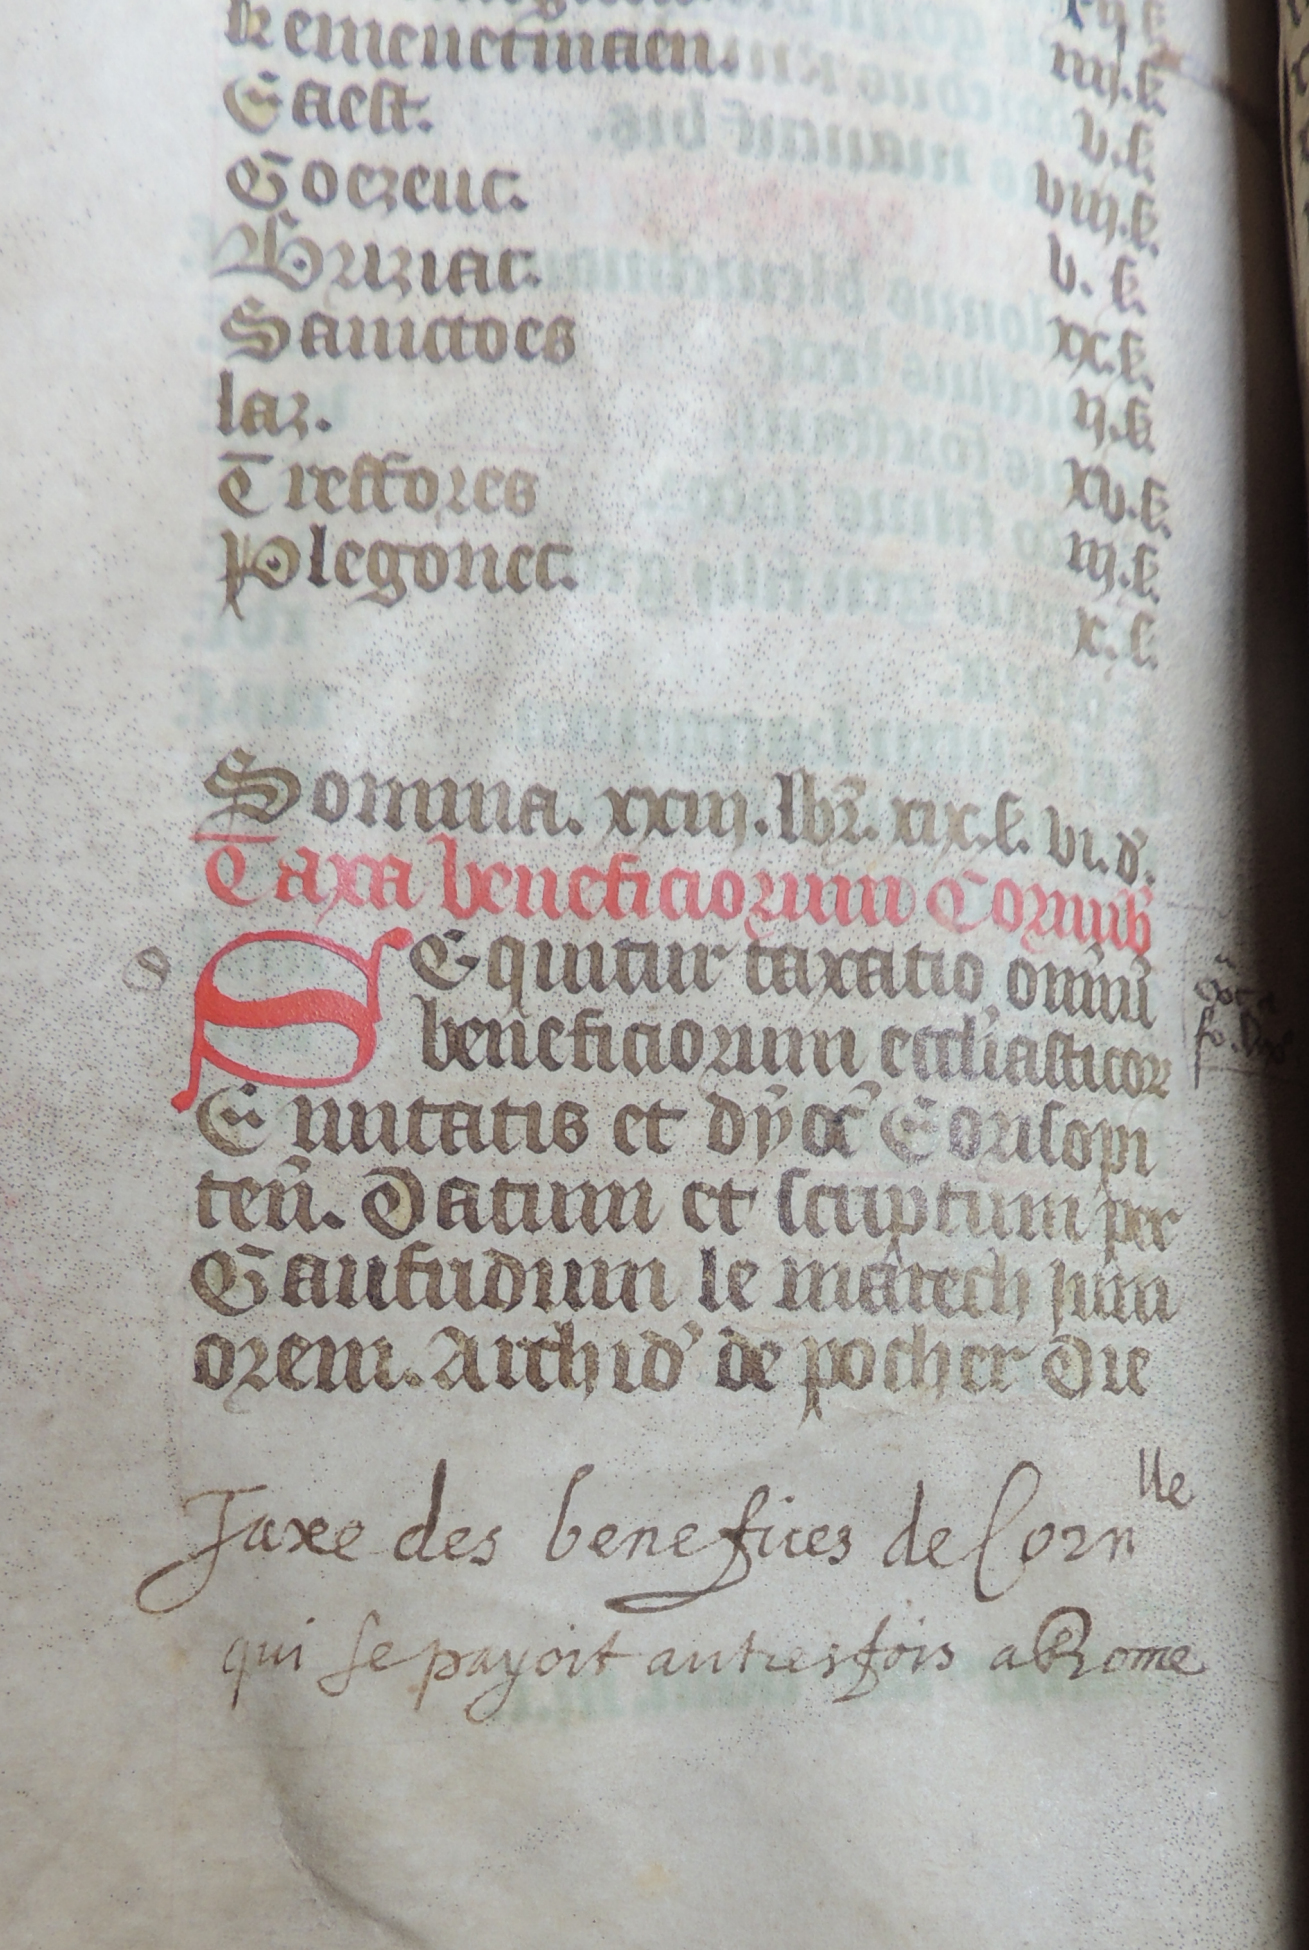 kemenetmaen. iiij.s.
Gaest. v.s.
Goezeuc. viij.s.
Bruziac. v. s.
Sanctoes xx.s.
laz. ij.s.
Treffores xv.s.
Plegonec. iij.s.
x. s.
Somma. xxiij. lbr. xix.s. vi.d.
Taxa beneficiorum Cornub
SEquitur taxatio omniu
beneficiorum eccliasticor
Ciuitatis et dyoc Corisopi
ten. Datum et scriptum per
Gaufridum le marech juni
orem. Archid de pocher die
Taxe des benefices de Corn lle
qui se payoit autresfois a Rome